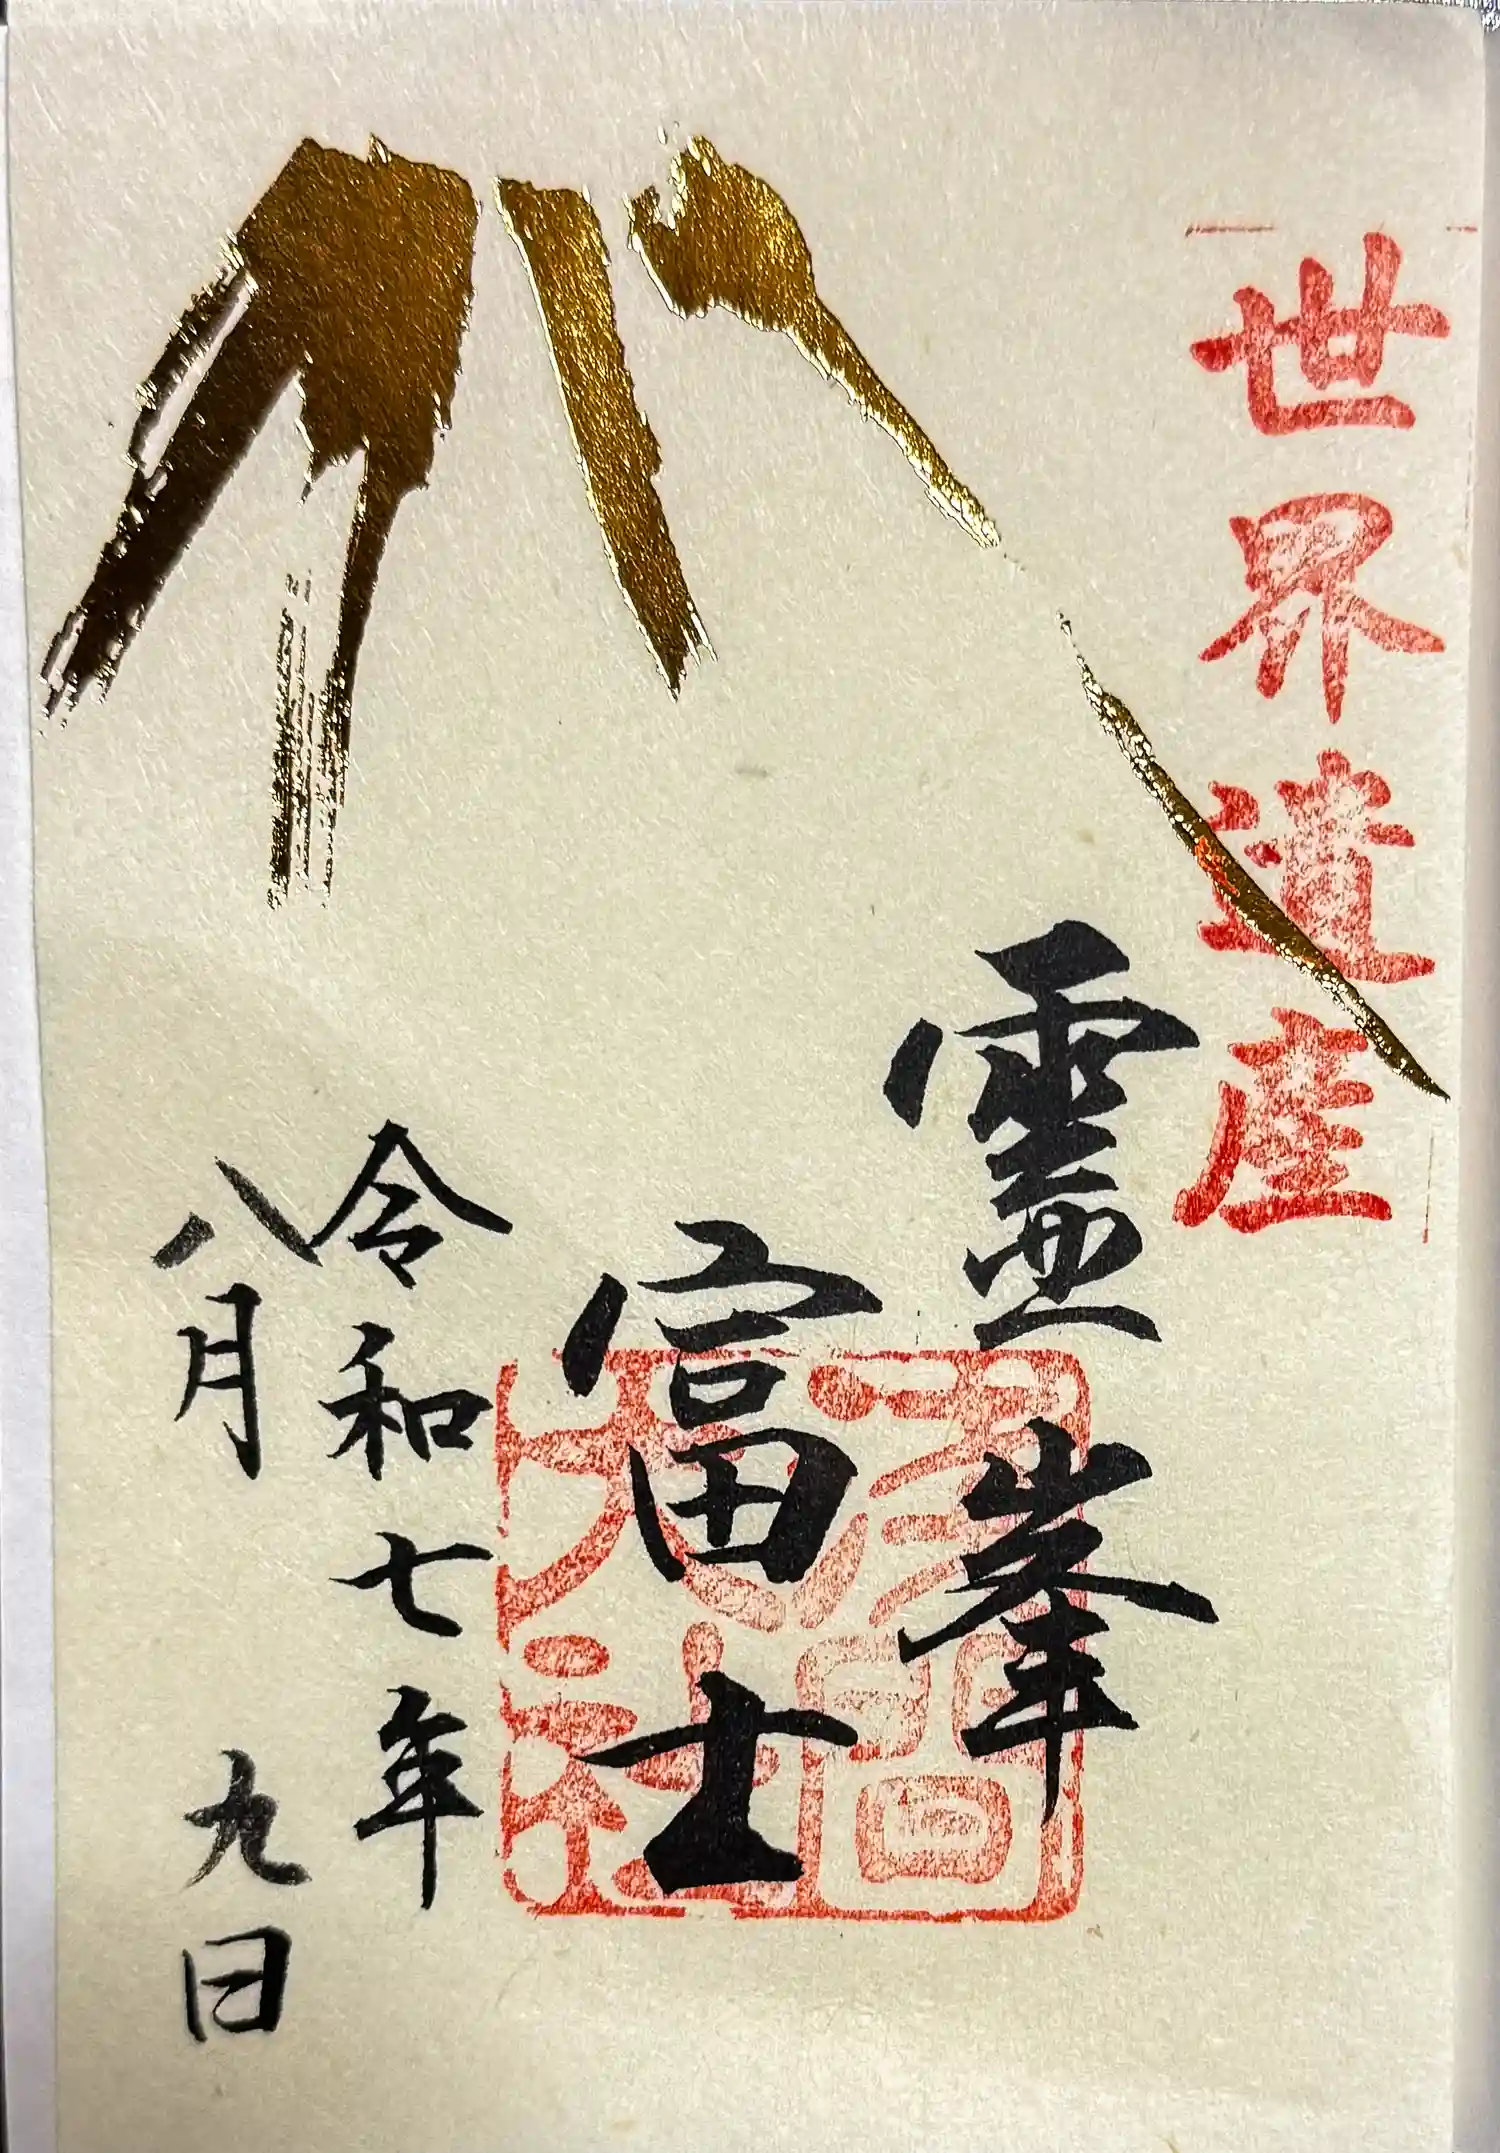 世界遺産
霊峯
富士
浅間
大社
令和七年
八月九日